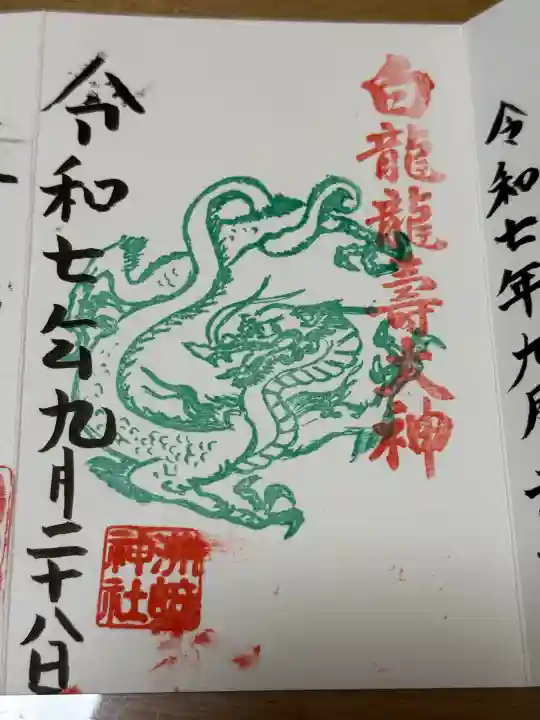 令和七年九月
白龍龍壽大神
令和七年九月二十八日
洲崎
神社